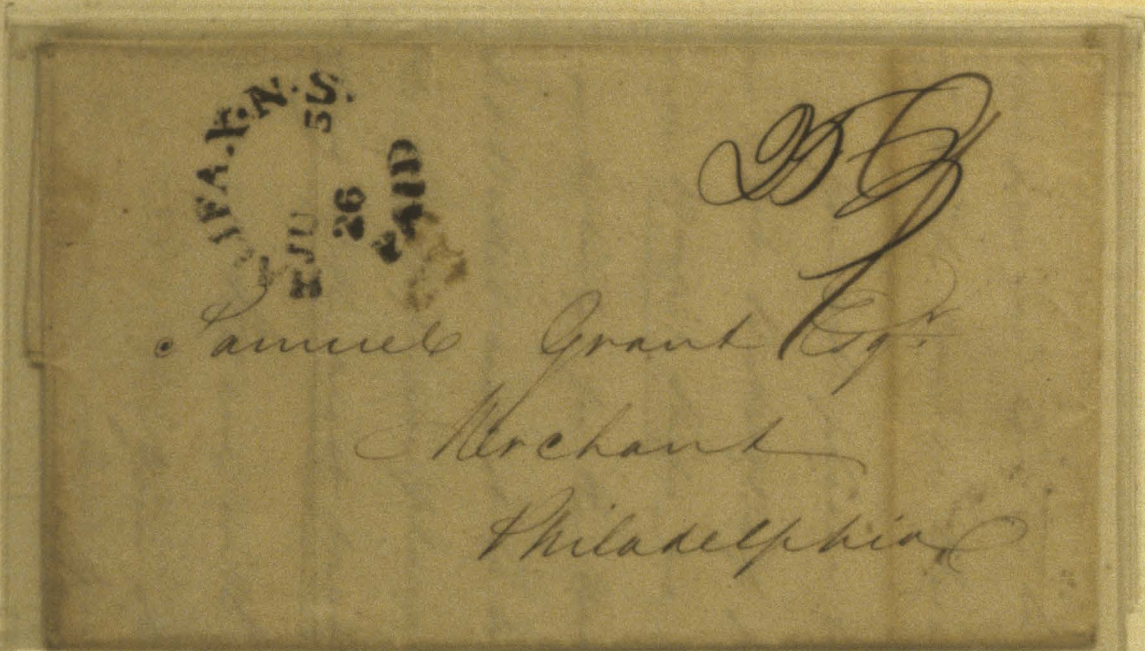 JU
26
PAID
Samuel Grant Esqr.
Merchant
Philadelphia